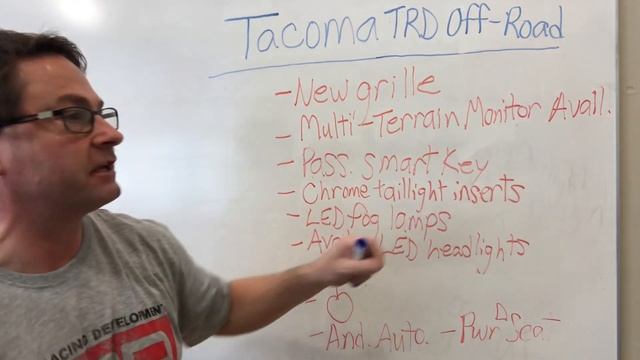 Tacoma TRD Off-Road
- New grille
- Multi-Terrain Monitor Avail.
- Pass. Smart Key
- Chrome taillight inserts
- LED fog lamps
- LED headlights
- And. Auto. - Pwr Seat
RACING DEVELOPMENT